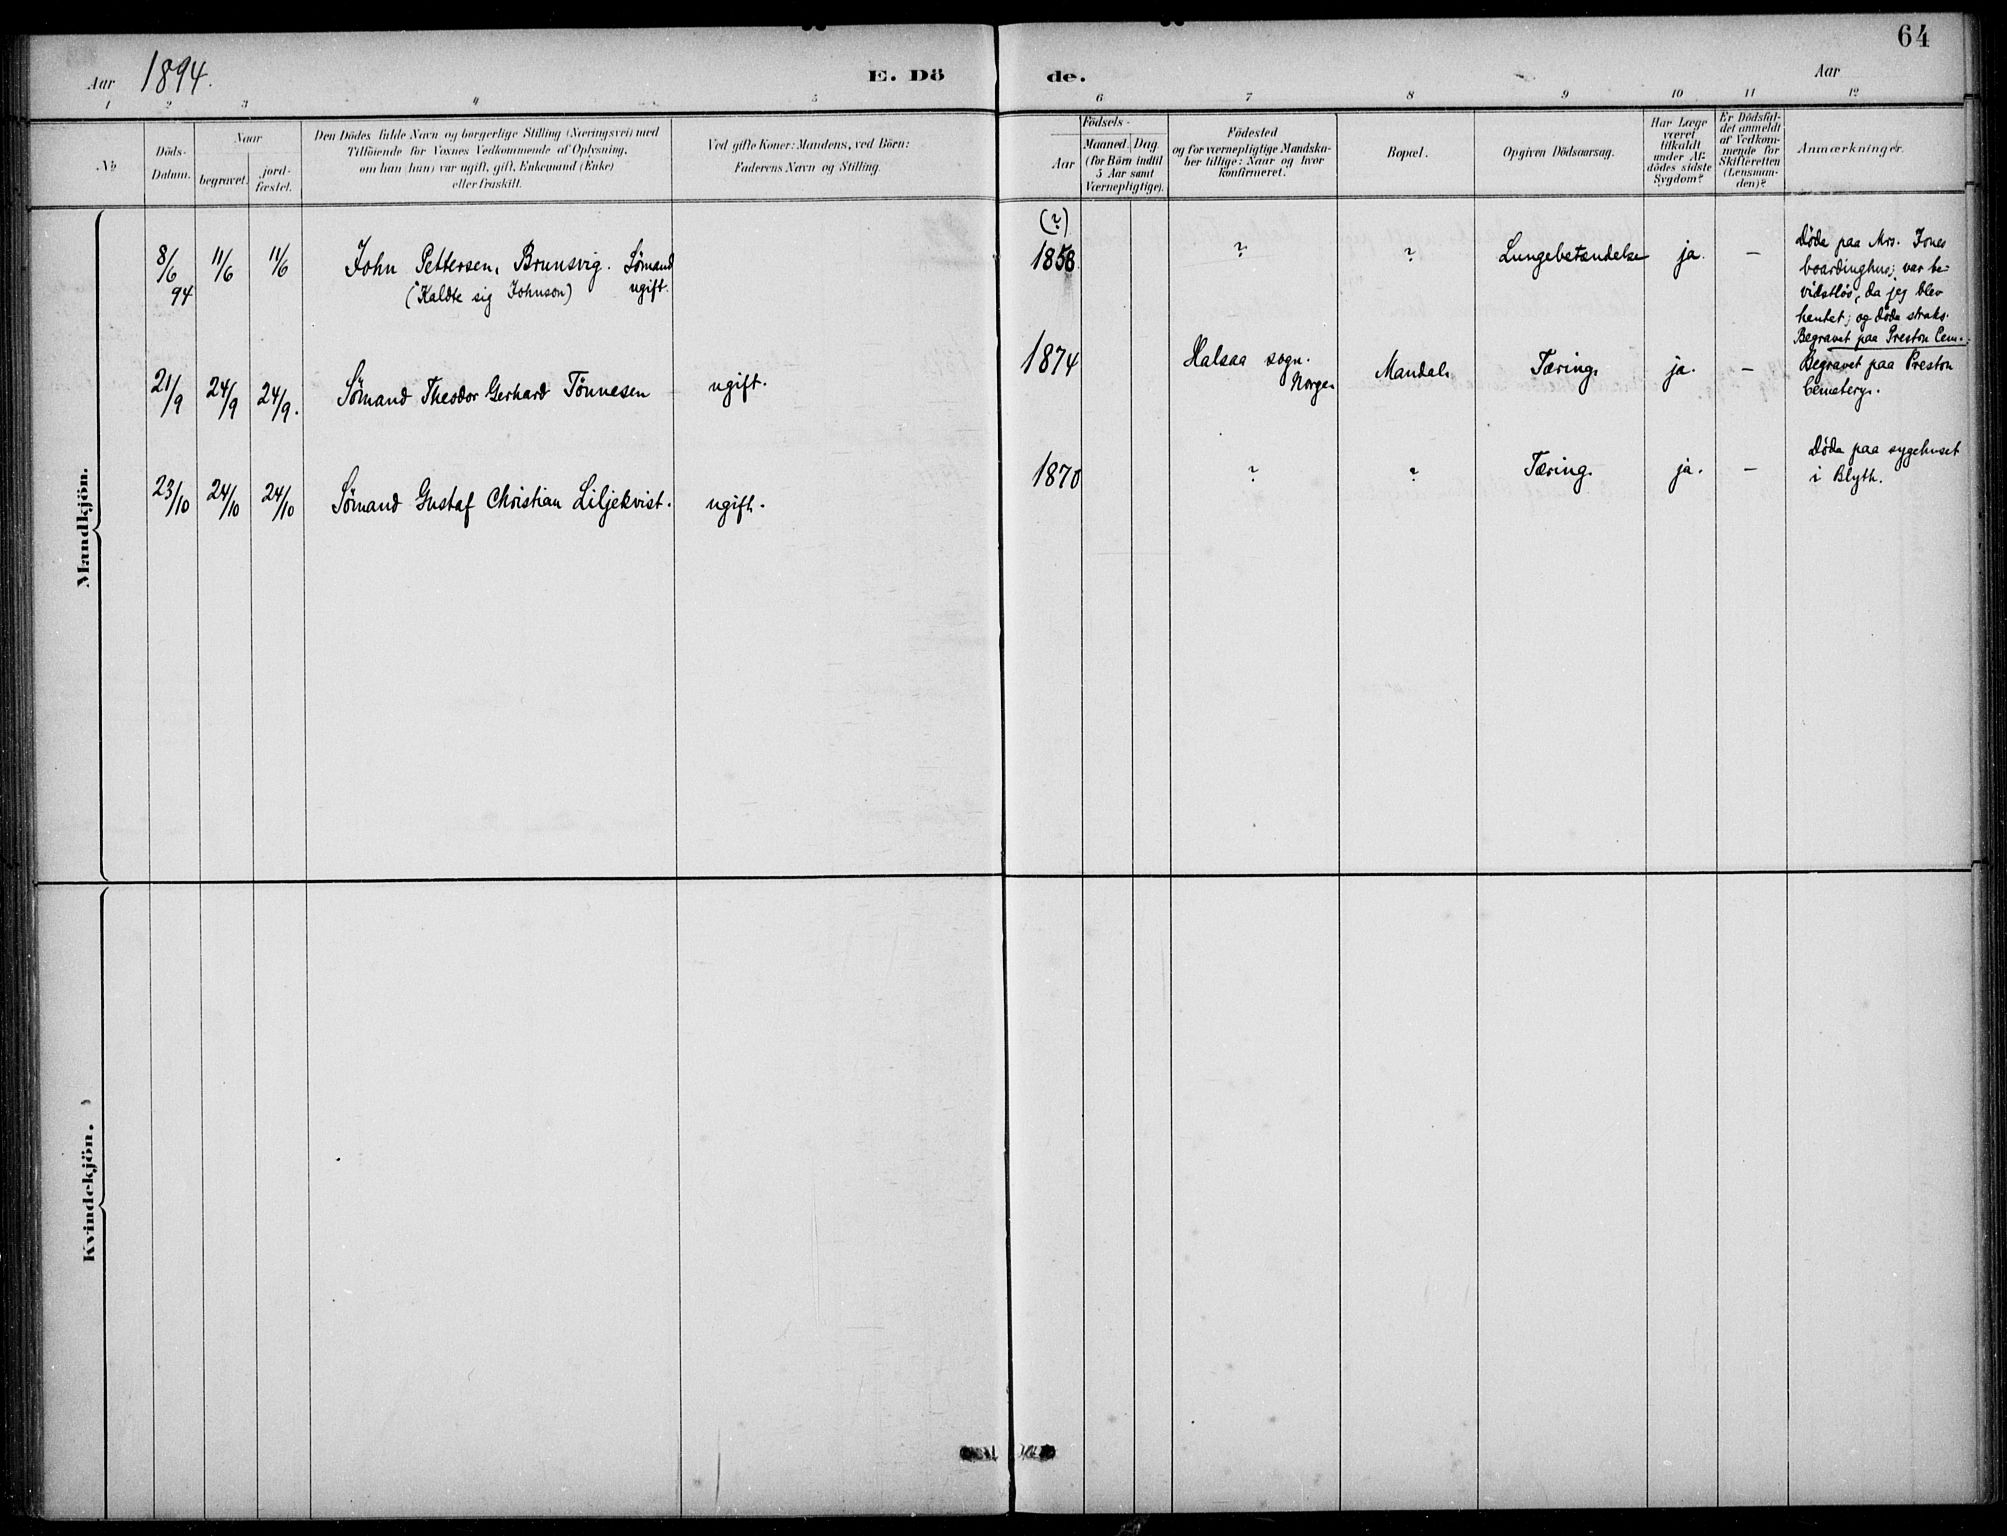 64
Aar 1894.
E. Dö
de.
Aar
1 2 3 4 5 6 7 8 9 10 11 12
No
Döds-
Datum.
Naar
begravet.
jord-
fæstet.
Den Dödes fulde Navn og borgerlige Stilling (Næringsvei) med
Tilföiende for Voxnes Vedkommende af Oplysning,
om han (hun) var ugift, gift, Enkemand (Enke)
eller fraskilt.
Ved gifte Koner: Mandens, ved Börn:
Faderens Navn og Stilling.
Födsels-
Aar
Maaned. Dag.
(for Börn indtil
5 Aar samt
Værnepligtige).
Födested
og for værnepligtige Mandska-
ber tillige: Naar og hvor
konfirmeret.
Bopæl.
Opgiven Dödsaarsag.
Har Læge
været
tilkaldt
under Af-
dödes sidste
Sygdom?
Er Dödsfal-
det anmeldt
af Vedkom-
mende for
Skifteretten
(Lensman-
den)?
Anmærkninger.
Mandkjön.
8/6 94 11/6 11/6 John Pettersen, Brunsvig. Sömand
(Kaldte sig Johnson) ugift.
(?)
1858 ? ? Lungebetændelse ja. –
Döde paa Mrs. Jones
boardinghus; var be-
vidstlös, da jeg blev
hentet; og döde straks.
Begravet paa Preston Cem.
21/9 24/9 24/9. Sömand Theodor Gerhard Tönnesen ugift.
1874 Halsaa sogn.
Norge. Mandal. Tæring. ja. –
Begravet paa Preston
Cemetery.
23/10 24/10 24/10 Sömand Gustaf Christian Liljekvist. ugift.
1870 ? ? Tæring. ja. –
Döde paa sygehuset
i Blyth.
Kvindekjön.